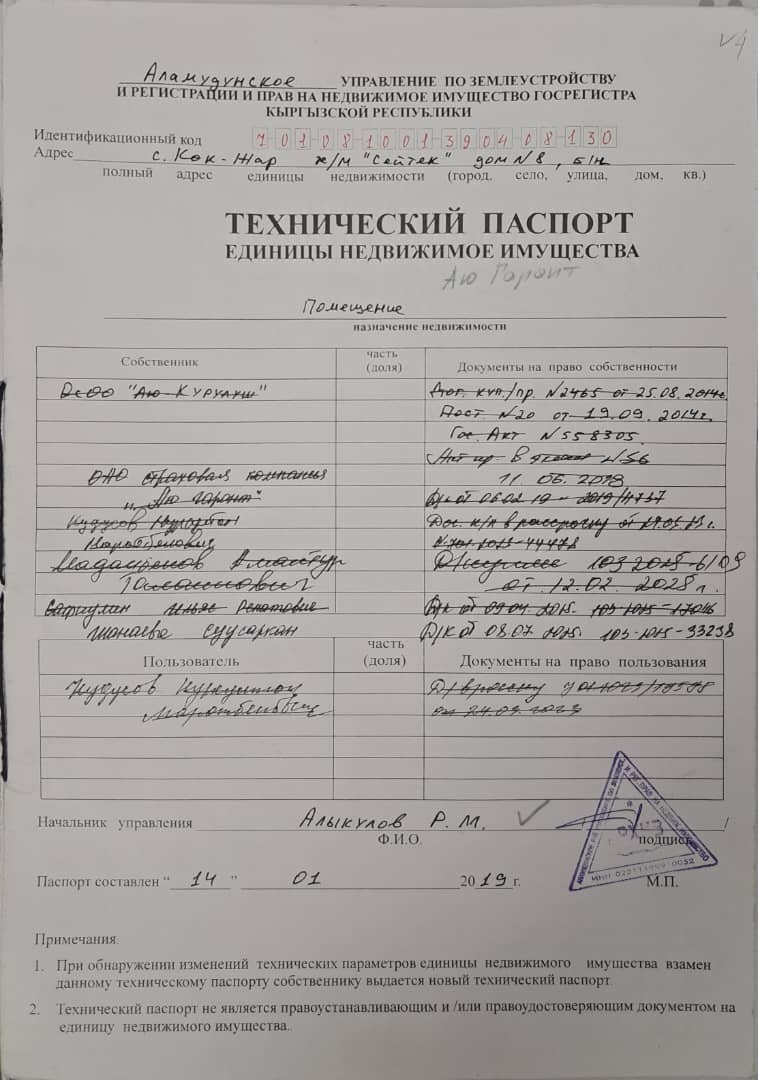 √4
Аламудунское УПРАВЛЕНИЕ ПО ЗЕМЛЕУСТРОЙСТВУ
И РЕГИСТРАЦИИ И ПРАВ НА НЕДВИЖИМОЕ ИМУЩЕСТВО ГОСРЕГИСТРА
КЫРГЫЗСКОЙ РЕСПУБЛИКИ
Идентификационный код 7 0 1 0 8 1 0 0 1 3 9 0 4 0 8 1 3 0
Адрес с. Кок-Жар ж/м "Сейтек" дом N8, б/н
полный адрес единицы недвижимости (город, село, улица, дом, кв.)
ТЕХНИЧЕСКИЙ ПАСПОРТ
ЕДИНИЦЫ НЕДВИЖИМОЕ ИМУЩЕСТВА
Аю Гарант
Помещение
назначение недвижимости
Собственник часть (доля) Документы на право собственности
ОсОО "Аю-Курулуш" Дог. куп./пр. N2465 от 25.08.2014г.
Пост. N20 от 19.09.2014г.
Гос. Акт N558305.
Акт пр. В N56
ОАО страховая компания 11.06.2018
"Аю гарант" 2019/4737
Кудусов
Маратбекович
Таласпович от 12.02.
Сафиулин Ильяс Ренатович Д/к от 09.04
Шанаева Д/к от 08.07 33238
Пользователь часть (доля) Документы на право пользования
Кудусов
Маратбекович от 24.09.2023
Начальник управления Алыкулов Р.М. /
Ф.И.О. подпись
Паспорт составлен “ 14 ” 01 2019г. М.П.
Примечания.
1. При обнаружении изменений технических параметров единицы недвижимого имущества взамен
данному техническому паспорту собственнику выдается новый технический паспорт.
2. Технический паспорт не является правоустанавливающим и /или правоудостоверяющим документом на
единицу недвижимого имущества.